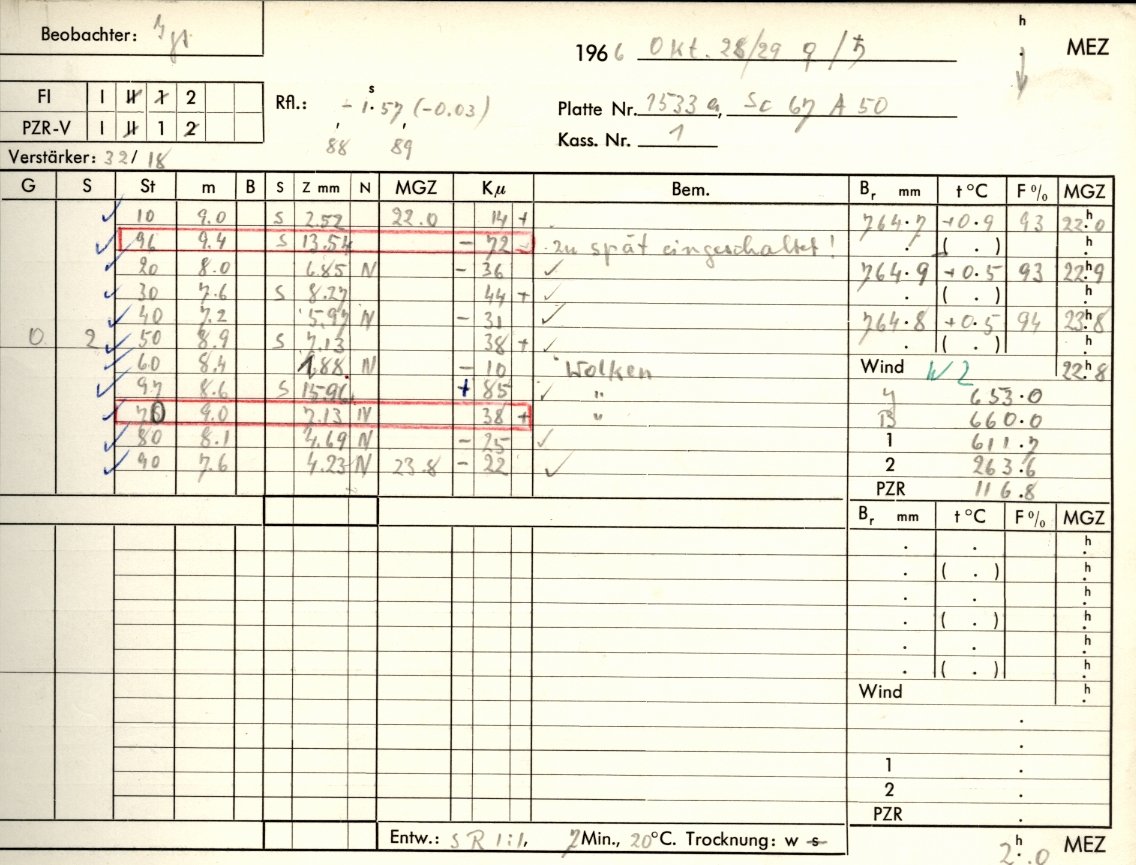 Beobachter:
h
1966 Okt. 28/29 ♀/♄ MEZ
FI I II 1 2
Rfl.: - 1.57 (-0.03)
s
Platte Nr. 1533 a, Sc 67 A 50
PZR-V I II 1 2
88 89
Kass. Nr. 1
Verstärker: 32/18
G S St m B S Z mm N MGZ Kμ Bem. Br mm t °C F % MGZ
10 9.0 S 2.52 22.0 14 + 764.7 +0.9 93 22h.0
96 9.4 S 13.54 - 72 zu spät eingeschaltet! . ( . ) h.
20 8.0 6.85 N - 36 ✓ 764.9 +0.5 93 22h.9
30 7.6 S 8.27 44 + ✓ . ( . ) h.
40 7.2 5.97 N - 31 ✓ 764.8 +0.5 94 23h.8
0 2 50 8.9 S 7.13 38 + ✓ . ( . ) h.
60 8.4 1.88 N - 10 Wolken Wind W 2 22h.8
97 8.6 S 15.96 + 85 ✓ " 653.0
70 9.0 7.13 N 38 + " B 660.0
80 8.1 4.69 N - 25 ✓ 1 611.7
90 7.6 4.23 N 23.8 - 22 ✓ 2 263.6
PZR 116.8
Br mm t °C F % MGZ
. . h.
. ( . ) h.
. . h.
. ( . ) h.
. . h.
. ( . ) h.
Wind h.
.
.
1 .
2 .
PZR .
Entw.: S R 1:1, 7 Min., 20°C. Trocknung: w s
2h.0 MEZ